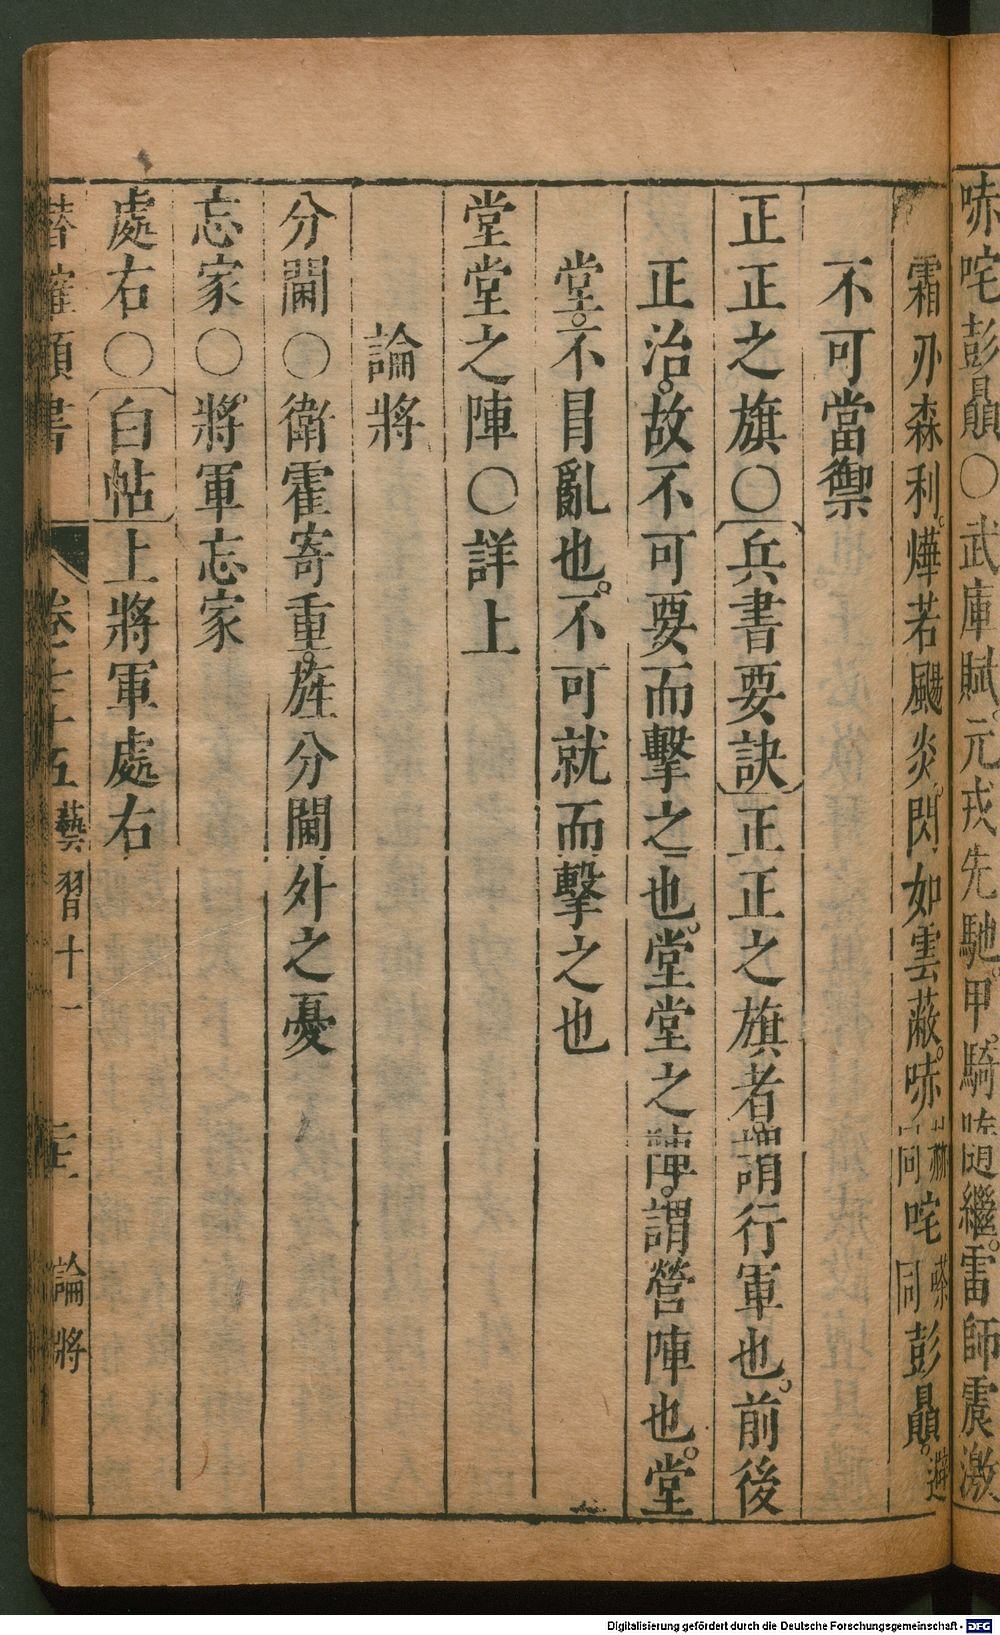 哧咤彭贔○武庫賦元戎先馳甲騎隨繼雷師震激
霜刃森利。燁若颺炎。閃如雲蔽。哧赫同咤嗏同彭贔。避
不可當禦
正正之旗○〔兵書要訣〕正正之旗者。謂行軍也。前後
正治。故不可要而擊之也。堂堂之陣。謂營陣也。堂
堂。不目亂也。不可就而擊之也
堂堂之陣○詳上
論將
分閫○衛霍寄重。旌分閫外之憂
忘家○將軍忘家
處右○〔白帖〕上將軍處右
類書 卷 十五 藝習十一 論將
Digitalisierung gefördert durch die Deutsche Forschungsgemeinschaft - DFG